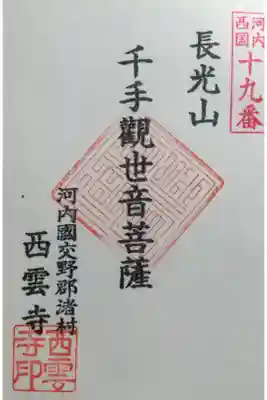 河内西国
十九番
長光山
千手觀世音菩薩
河内國交野郡渚村
西雲寺
西雲寺印